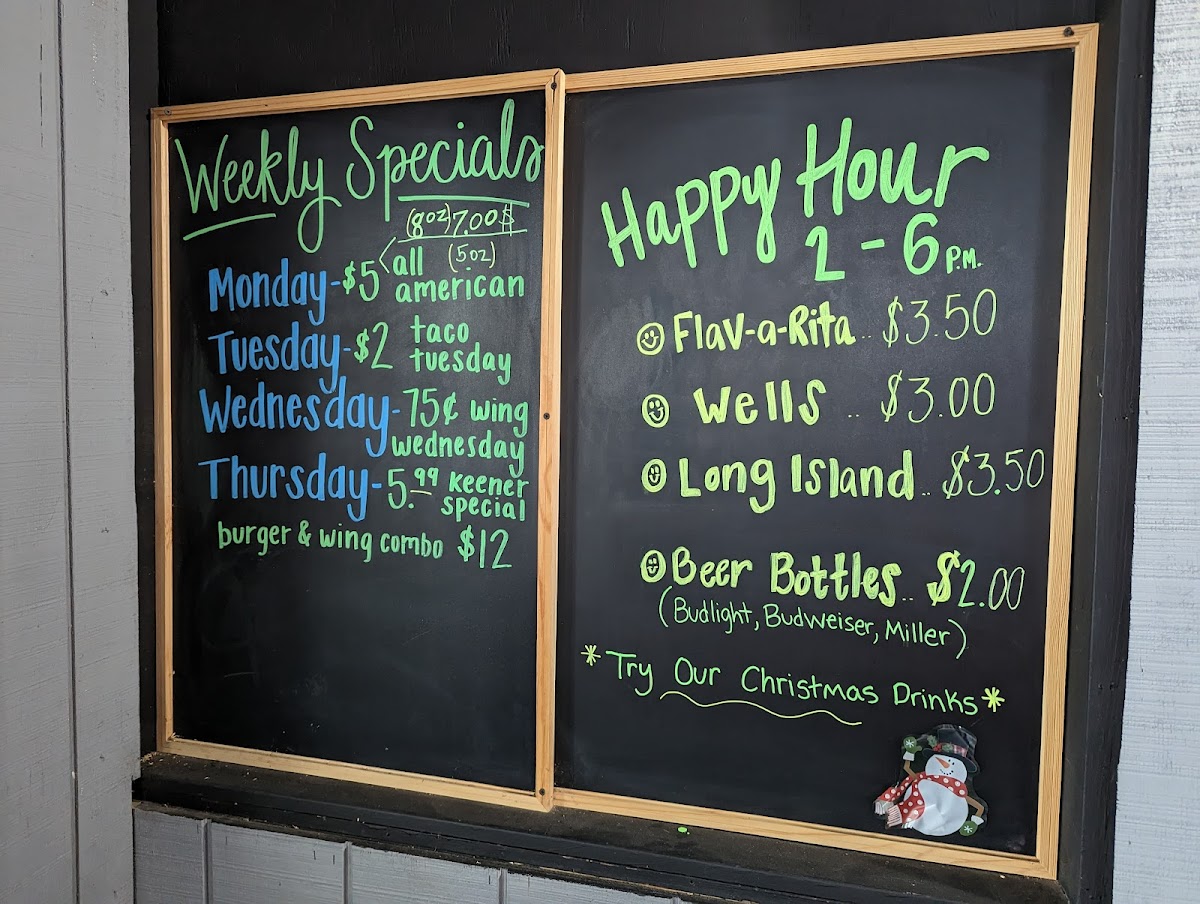 Weekly Specials
(8oz) 7.00$
Monday-$5 all (5oz)
american
Tuesday-$2 taco
tuesday
Wednesday-75¢ wing
wednesday
Thursday-5.99 keener
special
burger & wing combo $12
Happy Hour
2 - 6 P.M.
Flav-a-Rita.. $3.50
Wells .. $3.00
Long Island .. $3.50
Beer Bottles.. $2.00
(Budlight, Budweiser, Miller)
*Try Our Christmas Drinks*